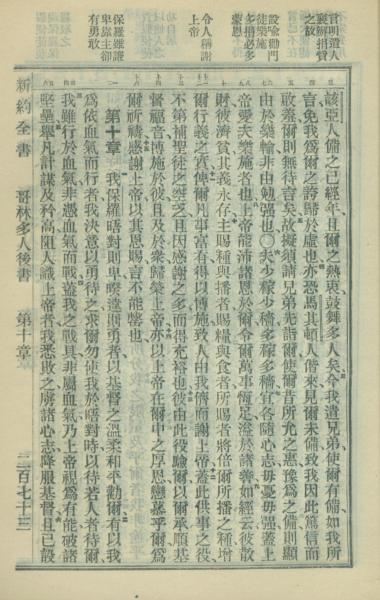 言明遣人
襄辦捐貲
之故
設喻勸門
徒樂施
多捐必多
蒙恩
令人稱謝
上帝
保羅雖謙
卑靠主卻
有勇敢
該亞人備之已經年且爾之熱衷鼓舞多人矣今我遣兄弟使爾有備如我所
言免我爲爾之誇歸於虛也亦恐馬其頓人偕來見爾未備致我因此篤信而
敢羞爾則無待言矣故擬須請兄弟先詣爾使爾昔所允之惠豫爲之備則顯
由於樂輸非由勉强也〇夫少稼少穡多稼多穡宜各隨心志毋憂毋强蓋上
帝愛夫樂施者也上帝能沛諸恩於爾令爾萬事恆足溢於諸善如經云彼散
財彼濟貧其義永存主賜種與播者賜糧與食者所賜者將倍爾所播之種增
爾行義之實俾爾凡事富有得以博施致人由我儕而謝上帝蓋此供事之役
不第補聖徒之空乏且因感謝之多而得充裕也彼由此役驗爾以爾承順基
督福音博施於彼且及於衆歸榮上帝亦以上帝在爾中之厚恩戀慕乎爾爲
爾祈禱感謝上帝以其恩賜言不能罄也
第十章 我保羅晤對則卑暌違則勇者以基督之溫柔和平勸爾有以我
爲依血氣而行者我決意以勇待之求爾勿使我於晤對時以待若人者待爾
我雖行於血氣非憑血氣而戰蓋我之戰具非屬血氣乃上帝視爲有能破諸
堅壘舉凡計謀及矜高阻人識上帝者我悉敗之虜諸心志降服基督且已設
新約全書 哥林多人後書 第十章 二百七十三